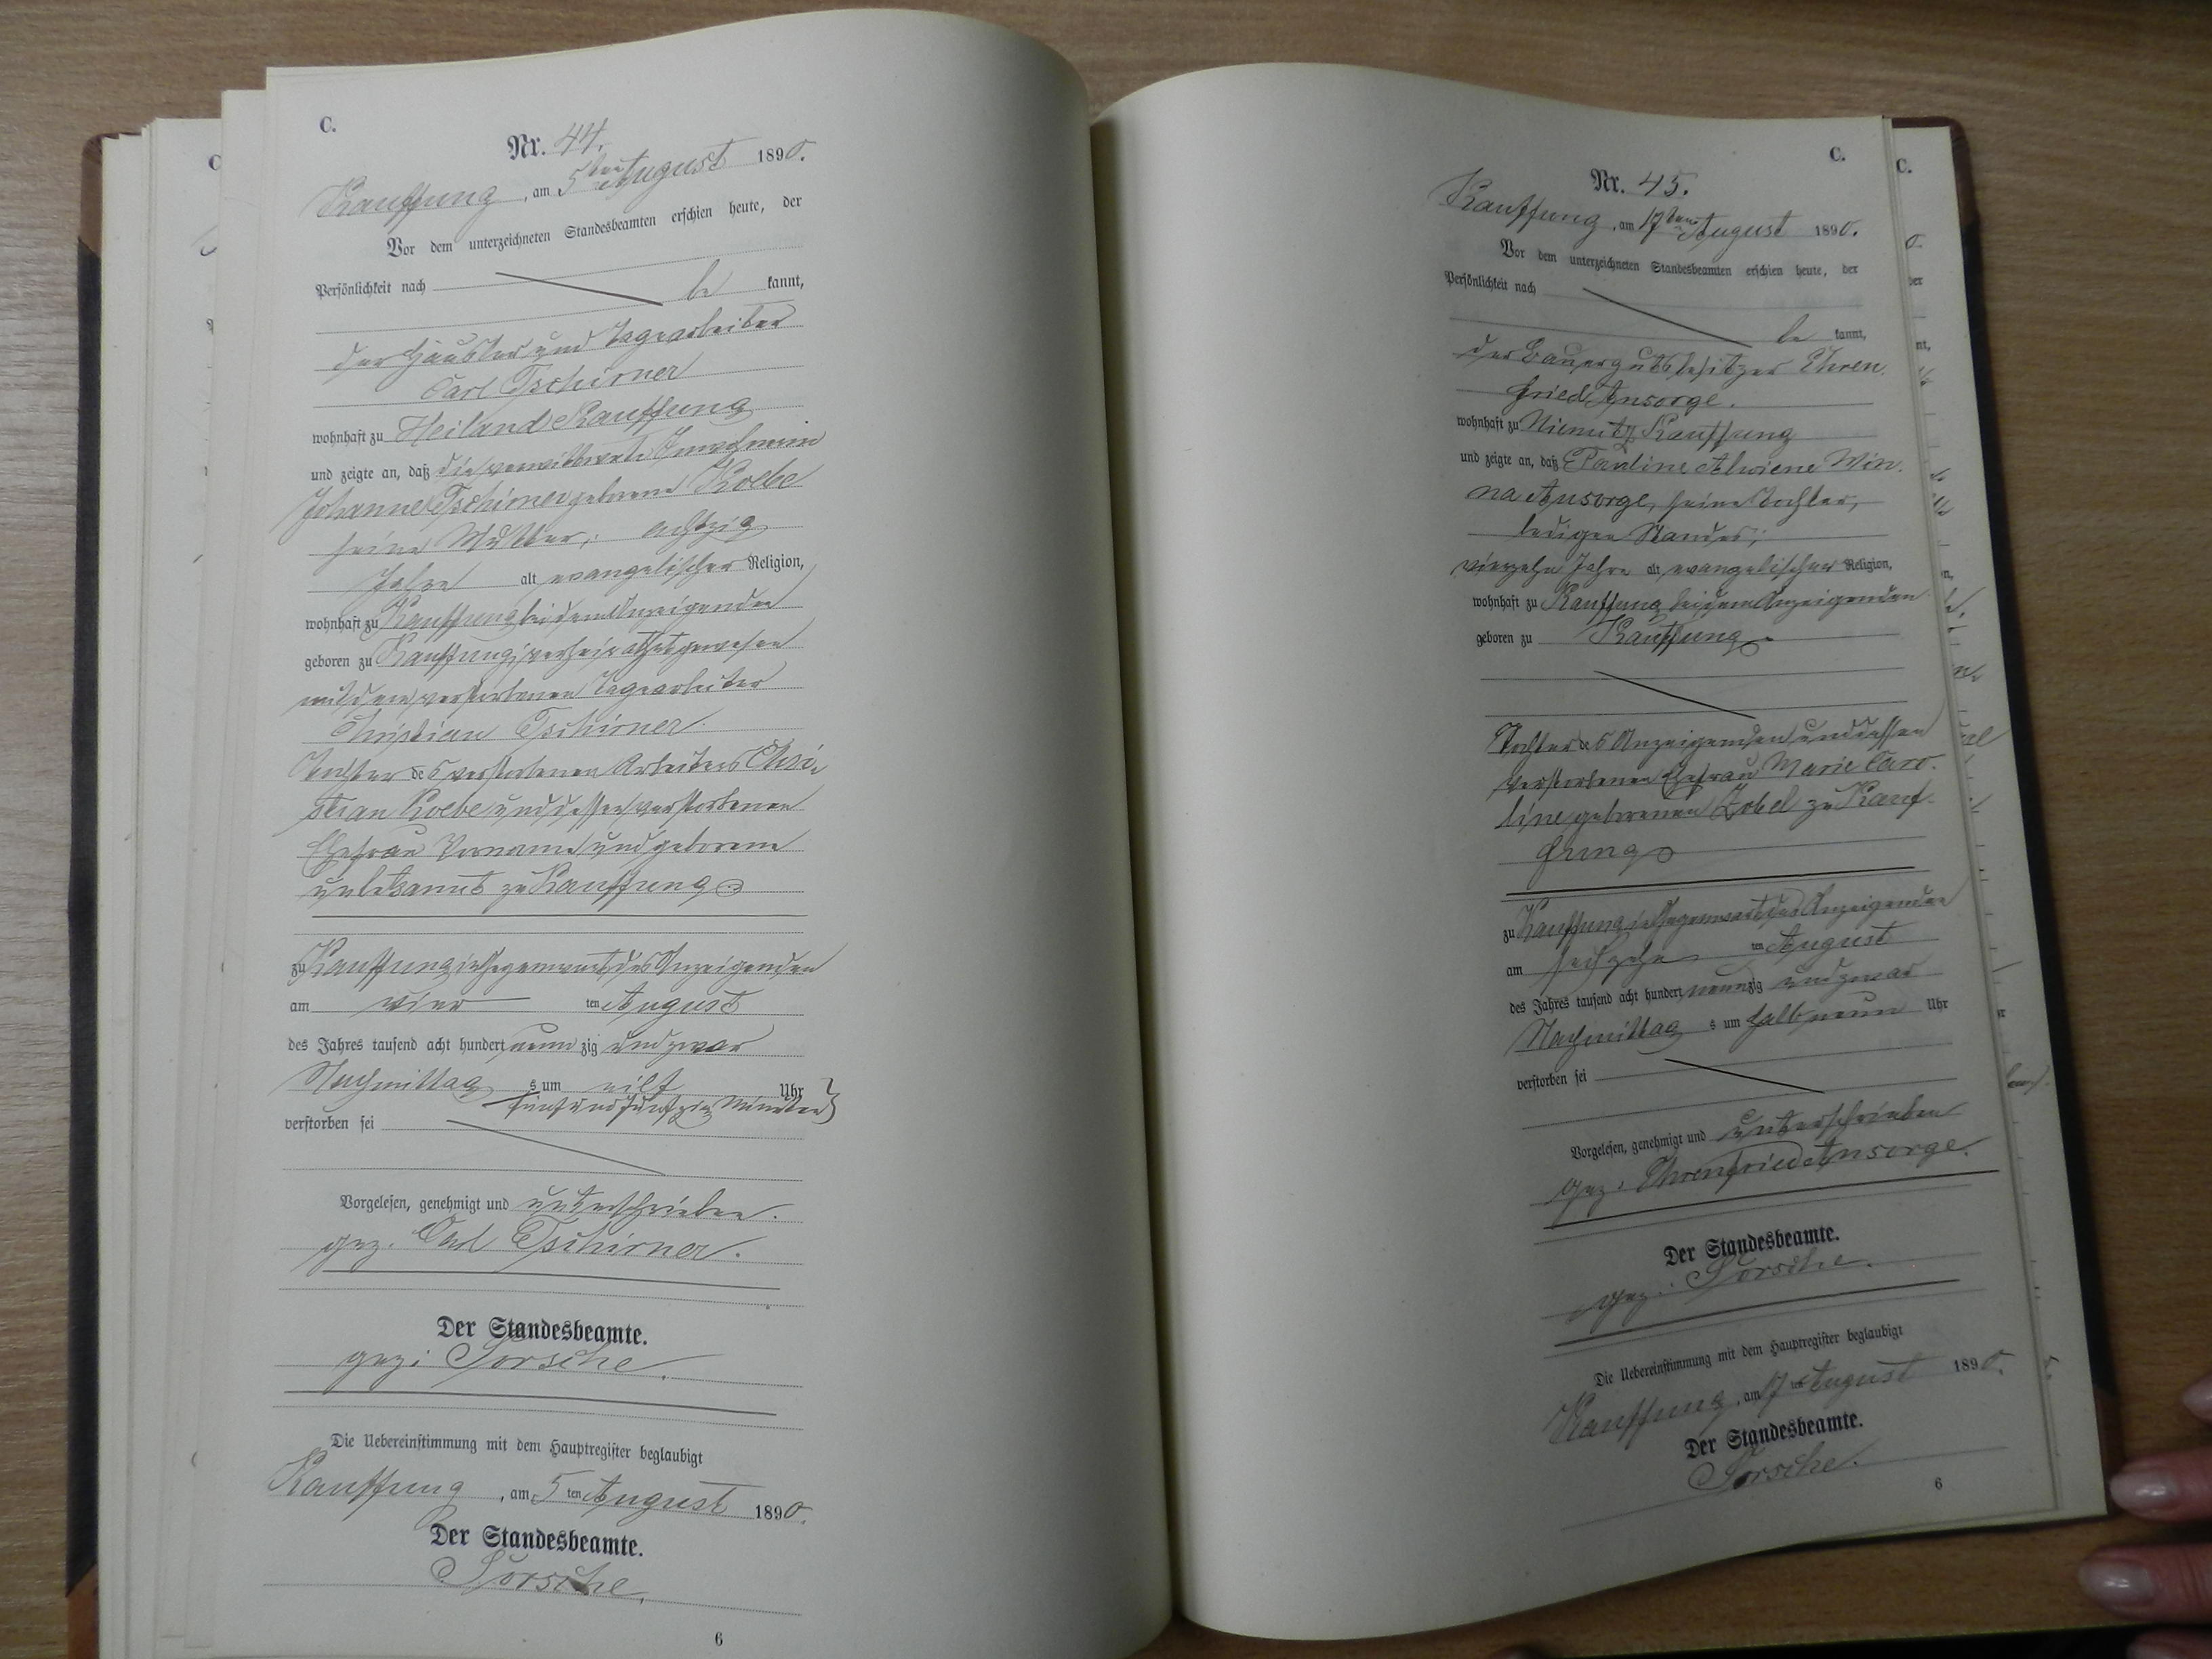 C.
Nr. 44.
Kauffung, am 5ten August 1890.
Vor dem unterzeichneten Standesbeamten erschien heute, der
Persönlichkeit nach
be kannt,
der Häusler und Tagearbeiter
Carl Tschirner
wohnhaft zu Heiland Kauffung
und zeigte an, daß die verwittwete Inwohnerin
Johanne Tschirner geborene Kolbe
seine Mutter, achtzig
Jahre alt, evangelischer Religion,
wohnhaft zu Kauffung bei dem Anzeigenden
geboren zu Kauffung, verheirathet gewesen
mit dem verstorbenen Tagearbeiter
Christian Tschirner.
Tochter des verstorbenen Arbeiters Chri-
stian Kolbe und dessen verstorbenen
Ehefrau Vorname und geborene
unbekannt zu Kauffung
zu Kauffung in Gegenwart des Anzeigenden
am vier ten August
des Jahres tausend acht hundert neunzig und zwar
Nachmittags um eilf Uhr
fünf und fünfzig Minuten
verstorben sei
Vorgelesen, genehmigt und unterschrieben.
gez. Carl Tschirner.
Der Standesbeamte.
gez: Sorsche.
Die Uebereinstimmung mit dem Hauptregister beglaubigt
Kauffung, am 5ten August 1890.
Der Standesbeamte.
Sorsche.
6
C.
Nr. 45.
Kauffung, am 17ten August 1890.
Vor dem unterzeichneten Standesbeamten erschien heute, der
Persönlichkeit nach
be kannt,
der Bauergutsbesitzer Ehren-
fried Ansorge.
wohnhaft zu Niemitz Kauffung
und zeigte an, daß Pauline Alwiene Min-
na Ansorge, seine Tochter,
ledigen Standes,
vierzehn Jahre alt, evangelischer Religion,
wohnhaft zu Kauffung bei dem Anzeigenden
geboren zu Kauffung
Tochter des Anzeigenden und dessen
verstorbenen Ehefrau Marie Caro-
line geborenen Zobel zu Kauf-
fung
zu Kauffung in Gegenwart des Anzeigenden
am sechszehn ten August
des Jahres tausend acht hundert neunzig und zwar
Nachmittags um halb neun Uhr
verstorben sei
Vorgelesen, genehmigt und unterschrieben
gez. Ehrenfried Ansorge.
Der Standesbeamte.
gez. Sorsche.
Die Uebereinstimmung mit dem Hauptregister beglaubigt
Kauffung, am 17ten August 1890.
Der Standesbeamte.
Sorsche.
6
C.